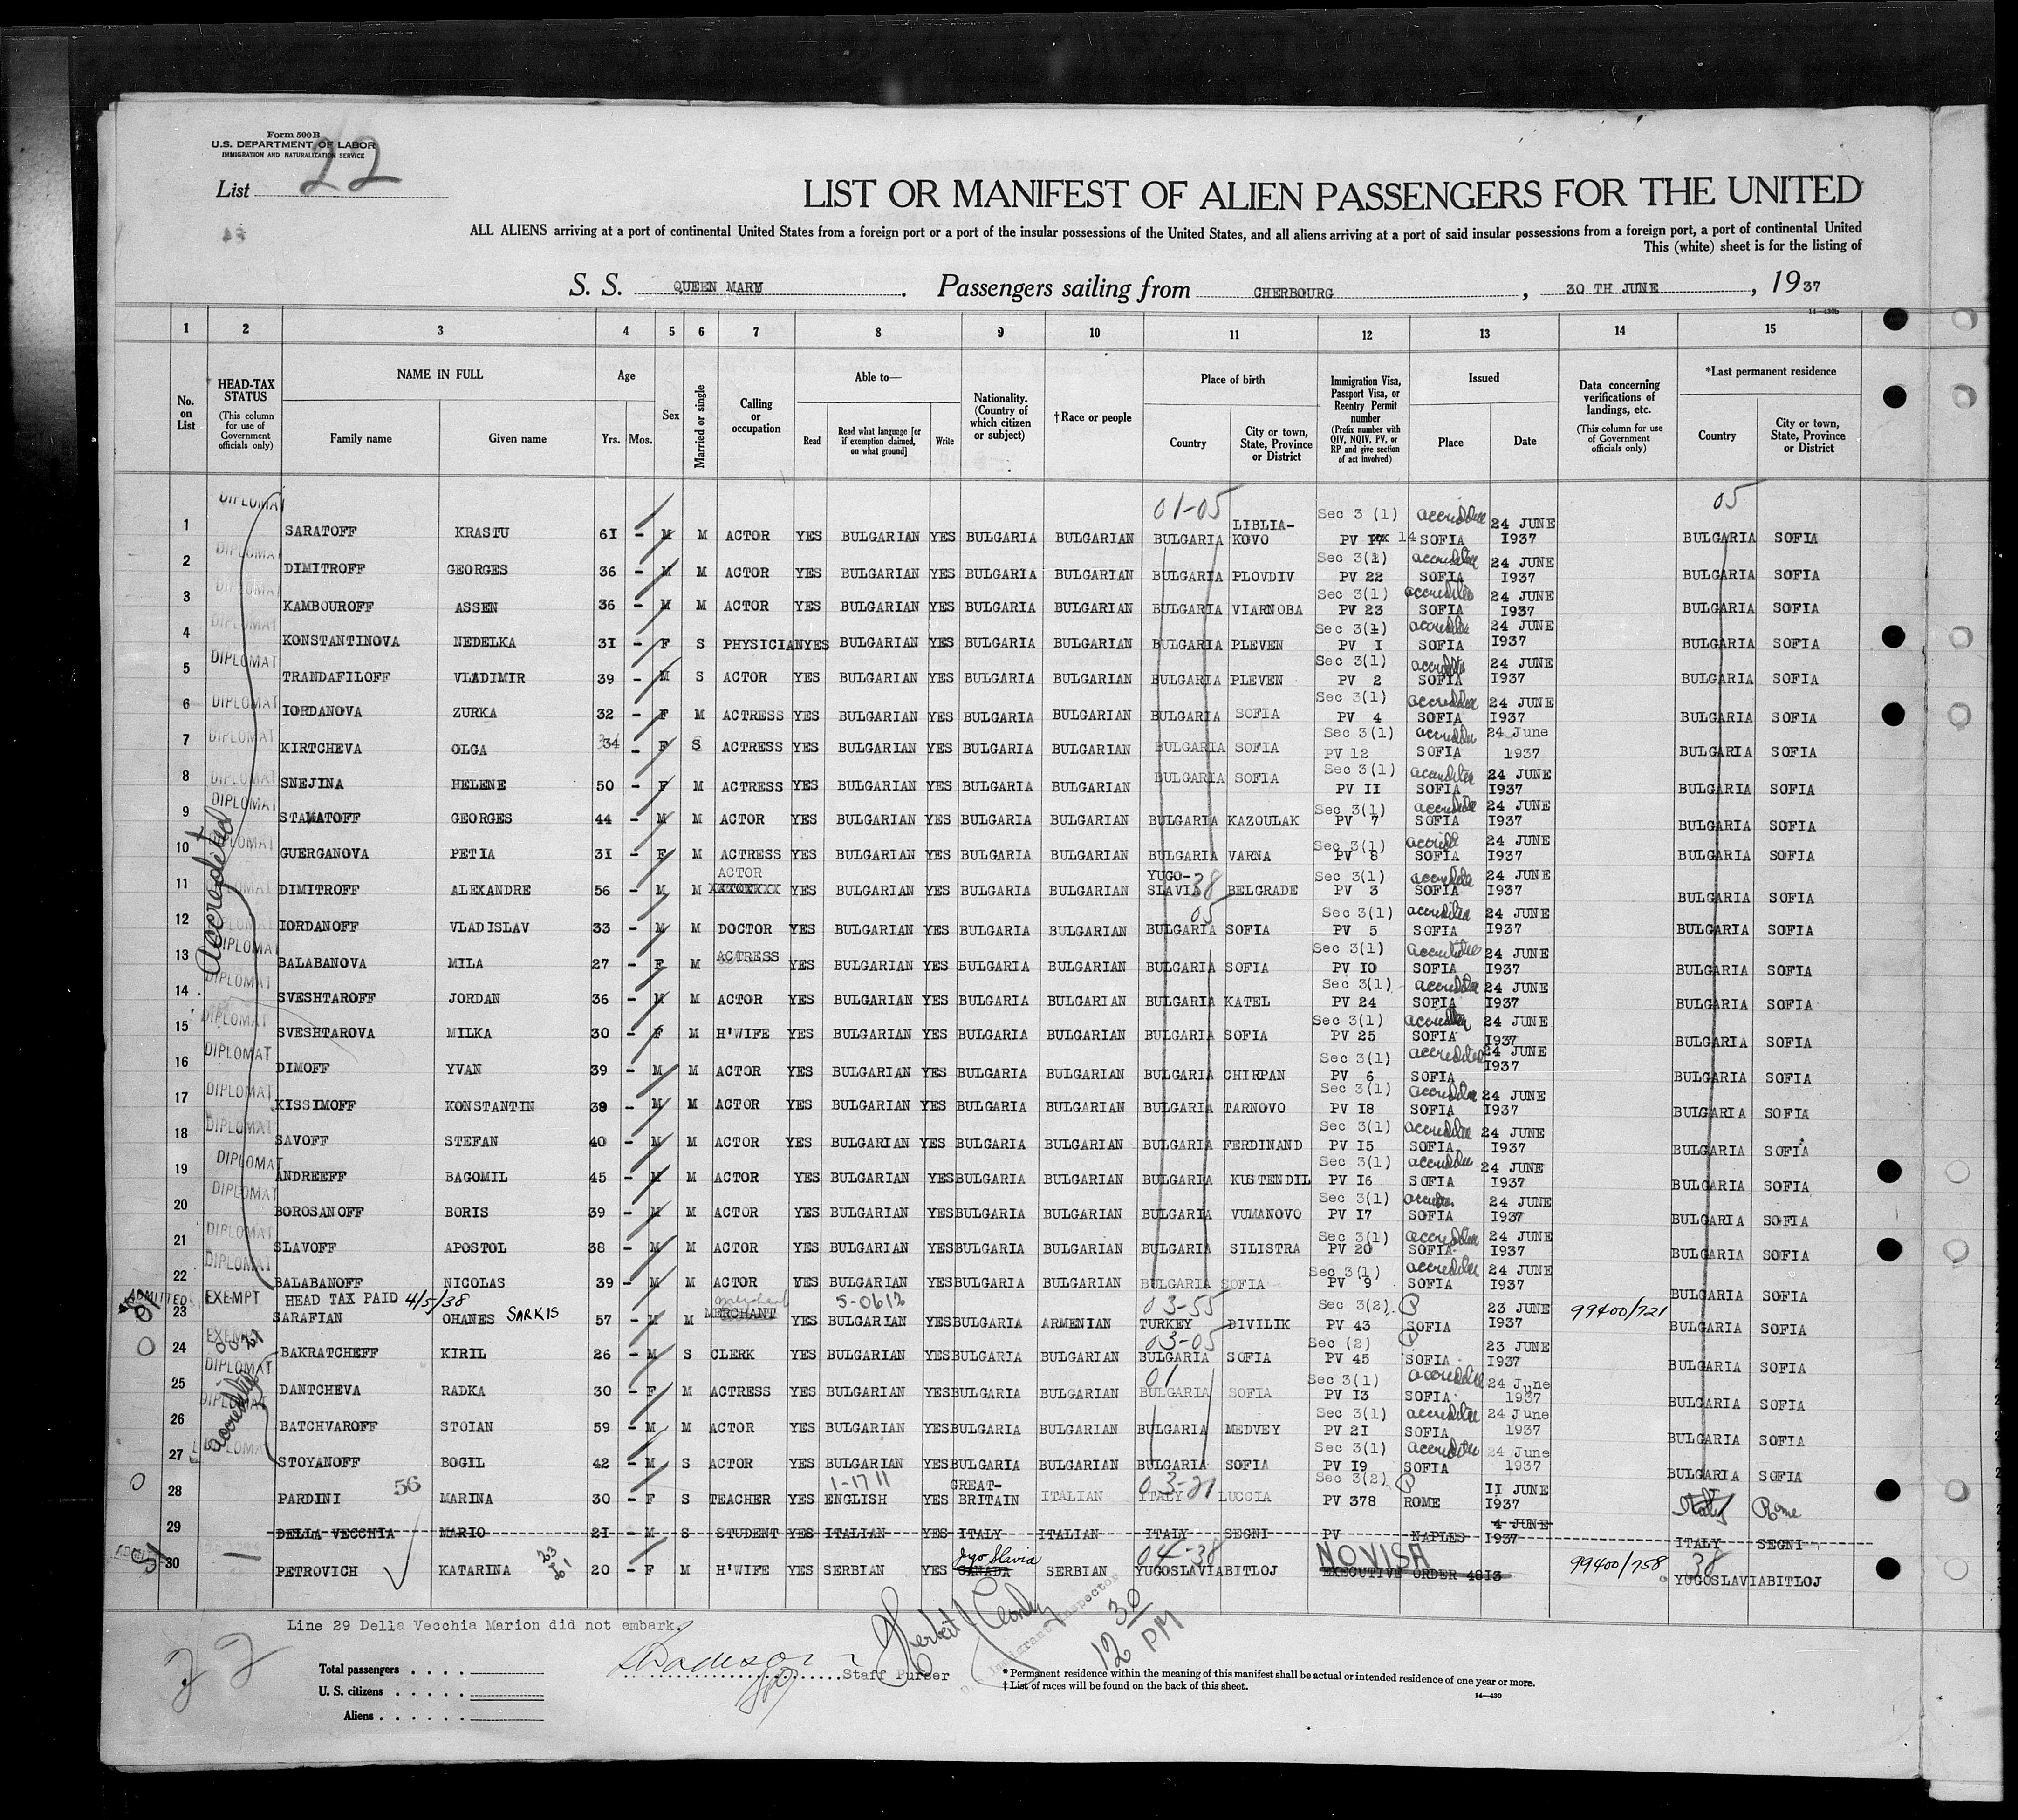 Form 500B
U.S. DEPARTMENT OF LABOR
IMMIGRATION AND NATURALIZATION SERVICE
List 22
LIST OR MANIFEST OF ALIEN PASSENGERS FOR THE UNITED
ALL ALIENS arriving at a port of continental United States from a foreign port or a port of the insular possessions of the United States, and all aliens arriving at a port of said insular possessions from a foreign port, a port of continental United
This (white) sheet is for the listing of
S. S. QUEEN MARY. Passengers sailing from CHERBOURG, 30 TH JUNE, 1937
14—430b
1 2 3 4 5 6 7 8 9 10 11 12 13 14 15
No. on List
HEAD-TAX STATUS (This column for use of Government officials only)
NAME IN FULL
Family name
Given name
Age
Yrs. Mos.
Sex
Married or single
Calling or occupation
Able to—
Read
Read what language [or if exemption claimed, on what ground]
Write
Nationality. (Country of which citizen or subject)
†Race or people
Place of birth
Country
City or town, State, Province or District
Immigration Visa, Passport Visa, or Reentry Permit number (Prefix number with QIV, NQIV, PV, or RP and give section of act involved)
Issued
Place
Date
Data concerning verifications of landings, etc. (This column for use of Government officials only)
*Last permanent residence
Country
City or town, State, Province or District
01-05 05
Accredited
1 DIPLOMAT SARATOFF KRASTU 61 - M M ACTOR YES BULGARIAN YES BULGARIA BULGARIAN BULGARIA LIBLIA-KOVO Sec 3 (1) PV 14 accredited SOFIA 24 JUNE I937 BULGARIA SOFIA
2 DIPLOMAT DIMITROFF GEORGES 36 - M M ACTOR YES BULGARIAN YES BULGARIA BULGARIAN BULGARIA PLOVDIV Sec 3(1) PV 22 accredited SOFIA 24 JUNE I937 BULGARIA SOFIA
3 DIPLOMAT KAMBOUROFF ASSEN 36 - M M ACTOR YES BULGARIAN YES BULGARIA BULGARIAN BULGARIA VIARNOBA Sec 3(1) PV 23 accredited SOFIA 24 JUNE I937 BULGARIA SOFIA
4 DIPLOMAT KONSTANTINOVA NEDELKA 3I - F S PHYSICIAN YES BULGARIAN YES BULGARIA BULGARIAN BULGARIA PLEVEN Sec 3(1) PV I accredited SOFIA 24 JUNE I937 BULGARIA SOFIA
5 DIPLOMAT TRANDAFILOFF VLADIMIR 39 - M S ACTOR YES BULGARIAN YES BULGARIA BULGARIAN BULGARIA PLEVEN Sec 3(1) PV 2 accredited SOFIA 24 JUNE I937 BULGARIA SOFIA
6 DIPLOMAT IORDANOVA ZURKA 32 - F M ACTRESS YES BULGARIAN YES BULGARIA BULGARIAN BULGARIA SOFIA Sec 3(1) PV 4 accredited SOFIA 24 JUNE I937 BULGARIA SOFIA
7 DIPLOMAT KIRTCHEVA OLGA 34 - F S ACTRESS YES BULGARIAN YES BULGARIA BULGARIAN BULGARIA SOFIA Sec 3(1) PV 12 accredited SOFIA 24 June 1937 BULGARIA SOFIA
8 DIPLOMAT SNEJINA HELENE 50 - F M ACTRESS YES BULGARIAN YES BULGARIA BULGARIAN BULGARIA SOFIA Sec 3(1) PV II accredited SOFIA 24 JUNE I937 BULGARIA SOFIA
9 DIPLOMAT STAMATOFF GEORGES 44 - M M ACTOR YES BULGARIAN YES BULGARIA BULGARIAN BULGARIA KAZOULAK Sec 3(1) PV 7 accredited SOFIA 24 JUNE I937 BULGARIA SOFIA
10 DIPLOMAT GUERGANOVA PETIA 3I - F M ACTRESS YES BULGARIAN YES BULGARIA BULGARIAN BULGARIA VARNA Sec 3(1) PV 8 accredited SOFIA 24 JUNE I937 BULGARIA SOFIA
11 DIPLOMAT DIMITROFF ALEXANDRE 56 - M M ACTOR YES BULGARIAN YES BULGARIA BULGARIAN YUGO-SLAVIA 38 BELGRADE Sec 3(1) PV 3 accredited SOFIA 24 JUNE I937 BULGARIA SOFIA
12 DIPLOMAT IORDANOFF VLADISLAV 33 - M M DOCTOR YES BULGARIAN YES BULGARIA BULGARIAN 05 BULGARIA SOFIA Sec 3(1) PV 5 accredited SOFIA 24 JUNE I937 BULGARIA SOFIA
13 DIPLOMAT BALABANOVA MILA 27 - F M ACTRESS YES BULGARIAN YES BULGARIA BULGARIAN BULGARIA SOFIA Sec 3(1) PV IO accredited SOFIA 24 JUNE I937 BULGARIA SOFIA
14 DIPLOMAT SVESHTAROFF JORDAN 36 - M M ACTOR YES BULGARIAN YES BULGARIA BULGARIAN BULGARIA KATEL Sec 3(1) PV 24 accredited SOFIA 24 JUNE I937 BULGARIA SOFIA
15 DIPLOMAT SVESHTAROVA MILKA 30 - F M H'WIFE YES BULGARIAN YES BULGARIA BULGARIAN BULGARIA SOFIA Sec 3(1) PV 25 accredited SOFIA 24 JUNE I937 BULGARIA SOFIA
16 DIPLOMAT DIMOFF YVAN 39 - M M ACTOR YES BULGARIAN YES BULGARIA BULGARIAN BULGARIA CHIRPAN Sec 3(1) PV 6 accredited SOFIA 24 JUNE I937 BULGARIA SOFIA
17 DIPLOMAT KISSIMOFF KONSTANTIN 39 - M M ACTOR YES BULGARIAN YES BULGARIA BULGARIAN BULGARIA TARNOVO Sec 3(1) PV I8 accredited SOFIA 24 JUNE I937 BULGARIA SOFIA
18 DIPLOMAT SAVOFF STEFAN 40 - M M ACTOR YES BULGARIAN YES BULGARIA BULGARIAN BULGARIA FERDINAND Sec 3(1) PV I5 accredited SOFIA 24 JUNE I937 BULGARIA SOFIA
19 DIPLOMAT ANDREEFF BAGOMIL 45 - M M ACTOR YES BULGARIAN YES BULGARIA BULGARIAN BULGARIA KUSTENDIL Sec 3(1) PV I6 accredited SOFIA 24 JUNE I937 BULGARIA SOFIA
20 DIPLOMAT BOROSANOFF BORIS 39 - M M ACTOR YES BULGARIAN YES BULGARIA BULGARIAN BULGARIA VUMANOVO Sec 3(1) PV I7 accredited SOFIA 24 JUNE I937 BULGARIA SOFIA
21 DIPLOMAT SLAVOFF APOSTOL 38 - M M ACTOR YES BULGARIAN YES BULGARIA BULGARIAN BULGARIA SILISTRA Sec 3(1) PV 20 accredited SOFIA 24 JUNE I937 BULGARIA SOFIA
22 DIPLOMAT BALABANOFF NICOLAS 39 - M M ACTOR YES BULGARIAN YES BULGARIA BULGARIAN BULGARIA SOFIA Sec 3(1) PV 9 accredited SOFIA 24 JUNE I937 BULGARIA SOFIA
ADMITTED EXEMPT HEAD TAX PAID 4/5/38 merchant 5-0612 03-55
23 SARAFIAN OHANES SARKIS 57 - M M MERCHANT YES BULGARIAN YES BULGARIA ARMENIAN TURKEY DIVILIK Sec 3(2) PV 43 SOFIA 23 JUNE I937 99400/721 BULGARIA SOFIA
24 EXEMPT BAKRATCHEFF KIRIL 26 - M S CLERK YES BULGARIAN YES BULGARIA BULGARIAN 03-05 BULGARIA SOFIA Sec (2) PV 45 SOFIA 23 JUNE I937 BULGARIA SOFIA
Accredited
25 DIPLOMAT DANTCHEVA RADKA 30 - F M ACTRESS YES BULGARIAN YES BULGARIA BULGARIAN 01 BULGARIA SOFIA Sec 3(1) PV I3 accredited SOFIA 24 June 1937 BULGARIA SOFIA
26 DIPLOMAT BATCHVAROFF STOIAN 59 - M M ACTOR YES BULGARIAN YES BULGARIA BULGARIAN BULGARIA MEDVEY Sec 3(1) PV 2I accredited SOFIA 24 June 1937 BULGARIA SOFIA
27 DIPLOMAT STOYANOFF BOGIL 42 - M S ACTOR YES BULGARIAN YES BULGARIA BULGARIAN BULGARIA SOFIA Sec 3(1) PV I9 accredited SOFIA 24 June 1937 BULGARIA SOFIA
28 PARDINI 56 MARINA 30 - F S TEACHER YES 1-1711 ENGLISH YES GREAT-BRITAIN ITALIAN 03-21 ITALY LUCCIA Sec 3(2) PV 378 ROME II JUNE I937 Italy Rome
29 DELLA VECCHIA MARIO 2I - M S STUDENT YES ITALIAN YES ITALY ITALIAN ITALY SEGNI PV NAPLES 4 JUNE I937 ITALY SEGNI
30 PETROVICH KATARINA 20 - F M H'WIFE YES SERBIAN YES CANADA Jugo Slavia SERBIAN 04-38 YUGOSLAVIA BITLOJ NO VISA EXECUTIVE ORDER 48I3 99400/758 38 YUGOSLAVIA BITLOJ
Line 29 Della Vecchia Marion did not embark.
22
Staff Purser
Immigrant Inspector
12 30 PM
Total passengers . . . .
U. S. citizens . . . . .
Aliens . . . . . .
* Permanent residence within the meaning of this manifest shall be actual or intended residence of one year or more.
† List of races will be found on the back of this sheet.
14—430